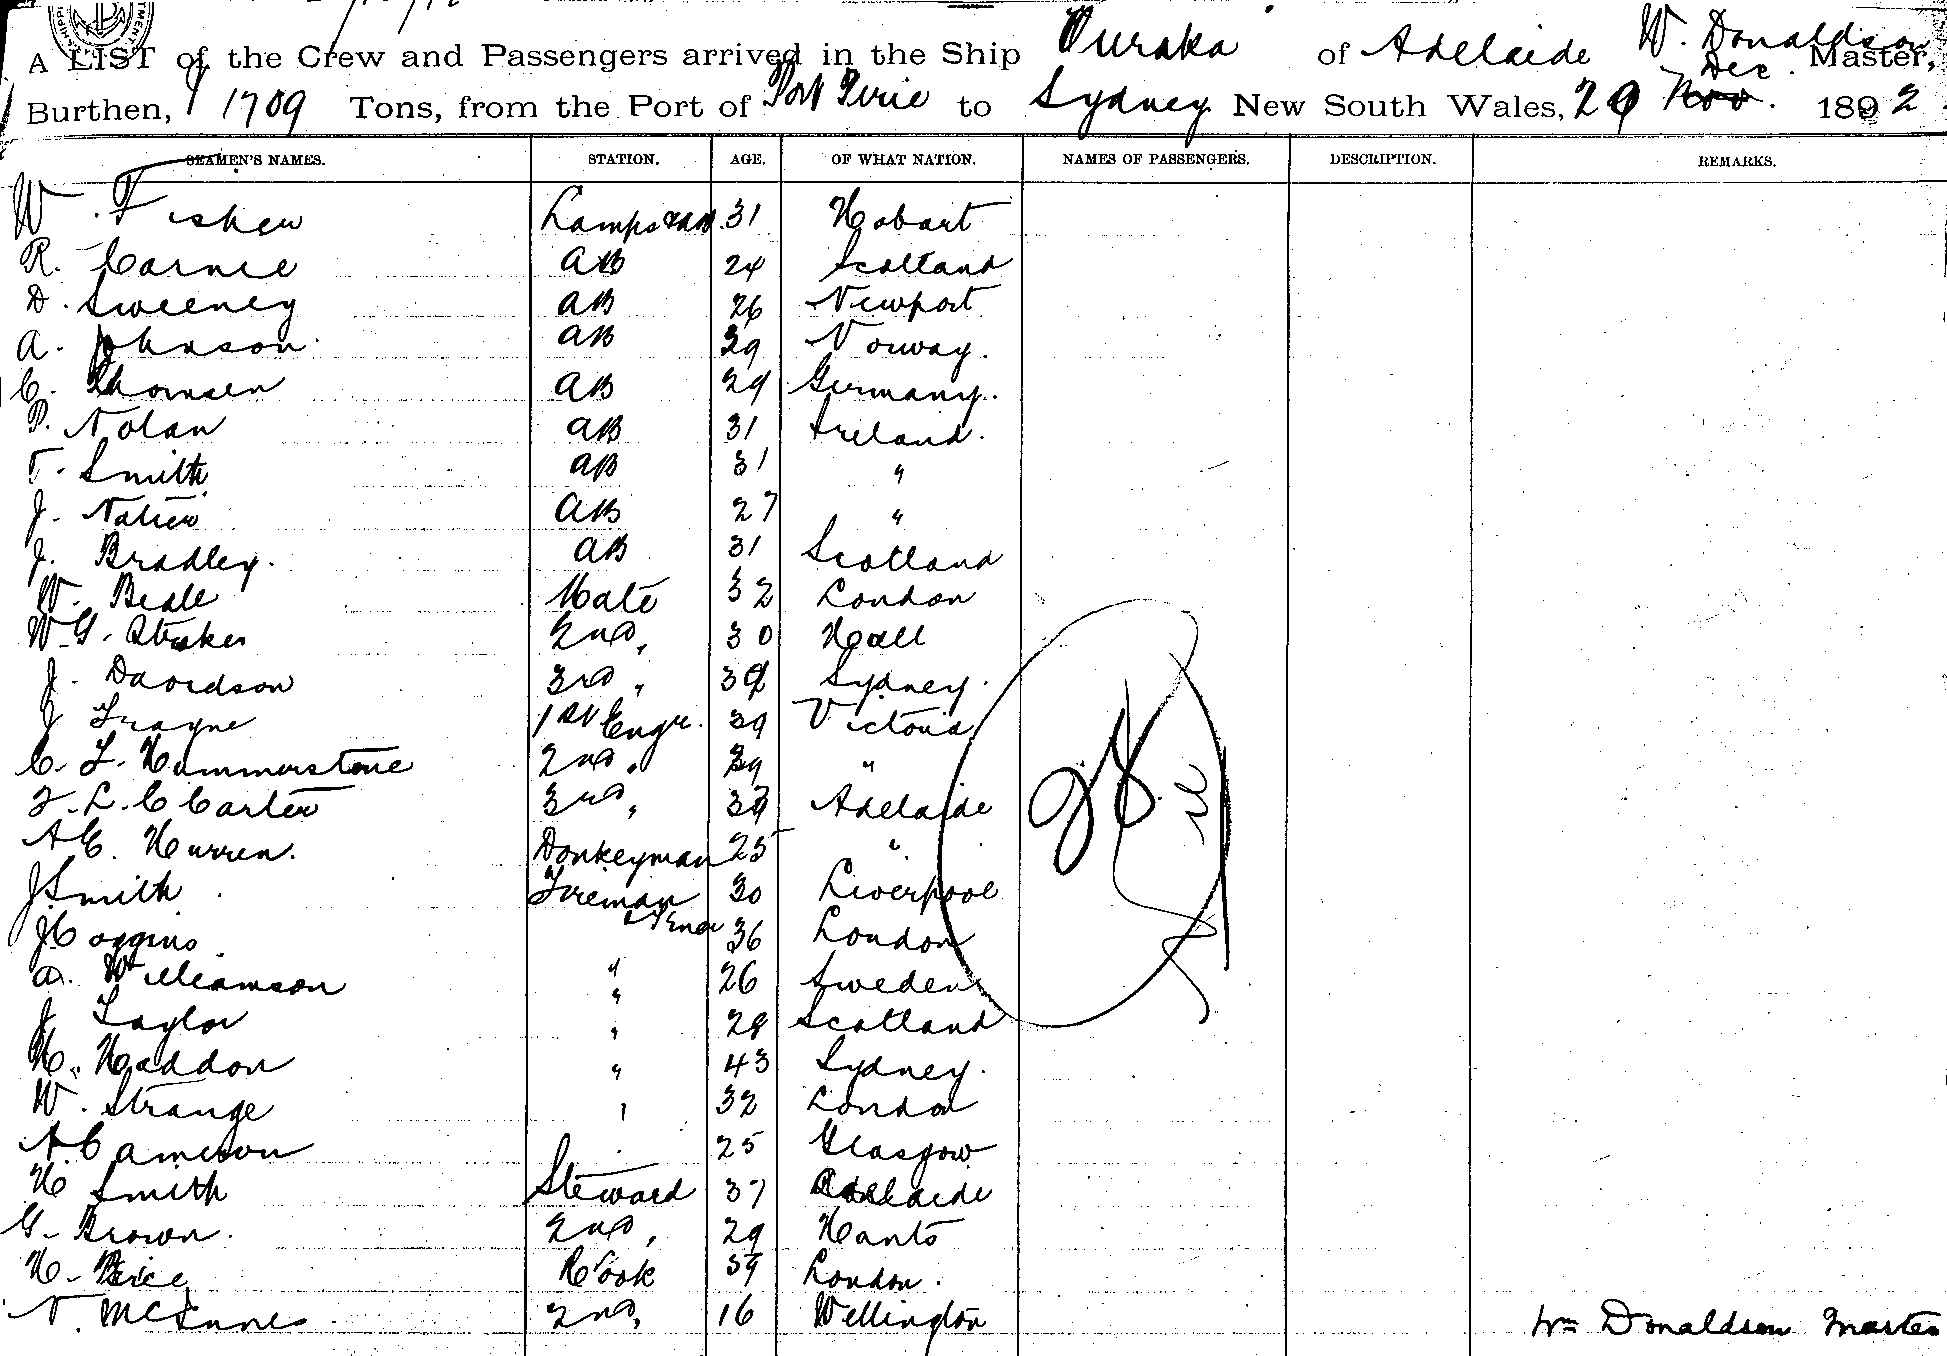 A LIST of the Crew and Passengers arrived in the Ship Ouraka of Adelaide W. Donaldson Master,
Burthen, 1709 Tons, from the Port of Port Pirie to Sydney New South Wales, 29 Nov. Dec. 1892
SEAMEN'S NAMES. STATION. AGE. OF WHAT NATION. NAMES OF PASSENGERS. DESCRIPTION. REMARKS.
W. Fisher Lamps 31 Hobart
R. Carnie AB 24 Scotland
D. Sweeney AB 26 Newport
A. Johnson AB 39 Norway.
C. Thomsen AB 29 Germany.
P. Nolan AB 31 Ireland.
T. Smith AB 31 "
J. AB 27 "
J. Bradley. AB 31 Scotland
W. Beale Mate 32 London
W.G. Straker 2nd " 30 Hull
J. Davidson 3rd " Sydney.
J Trayne 1st Engr. 39 Victoria
C. F. Hummerstone 2nd " 39 "
F. L. C Carter 3rd " Adelaide
A C. Hurren. Donkeyman 25 "
J Smith Fireman 30 Liverpool
J Coggins 36 London
A. Williamson " 26 Sweden
J Taylor " 28 Scotland
H. Haddon " 43 Sydney.
W. Strange " 32 London
A Cameron 25 Glasgow
H Smith Steward 37 Adelaide
G. Brown. 2nd " 29 Hants
H. Price Cook London.
N. McInnes 2nd " 16 Wellington
Wm Donaldson Master